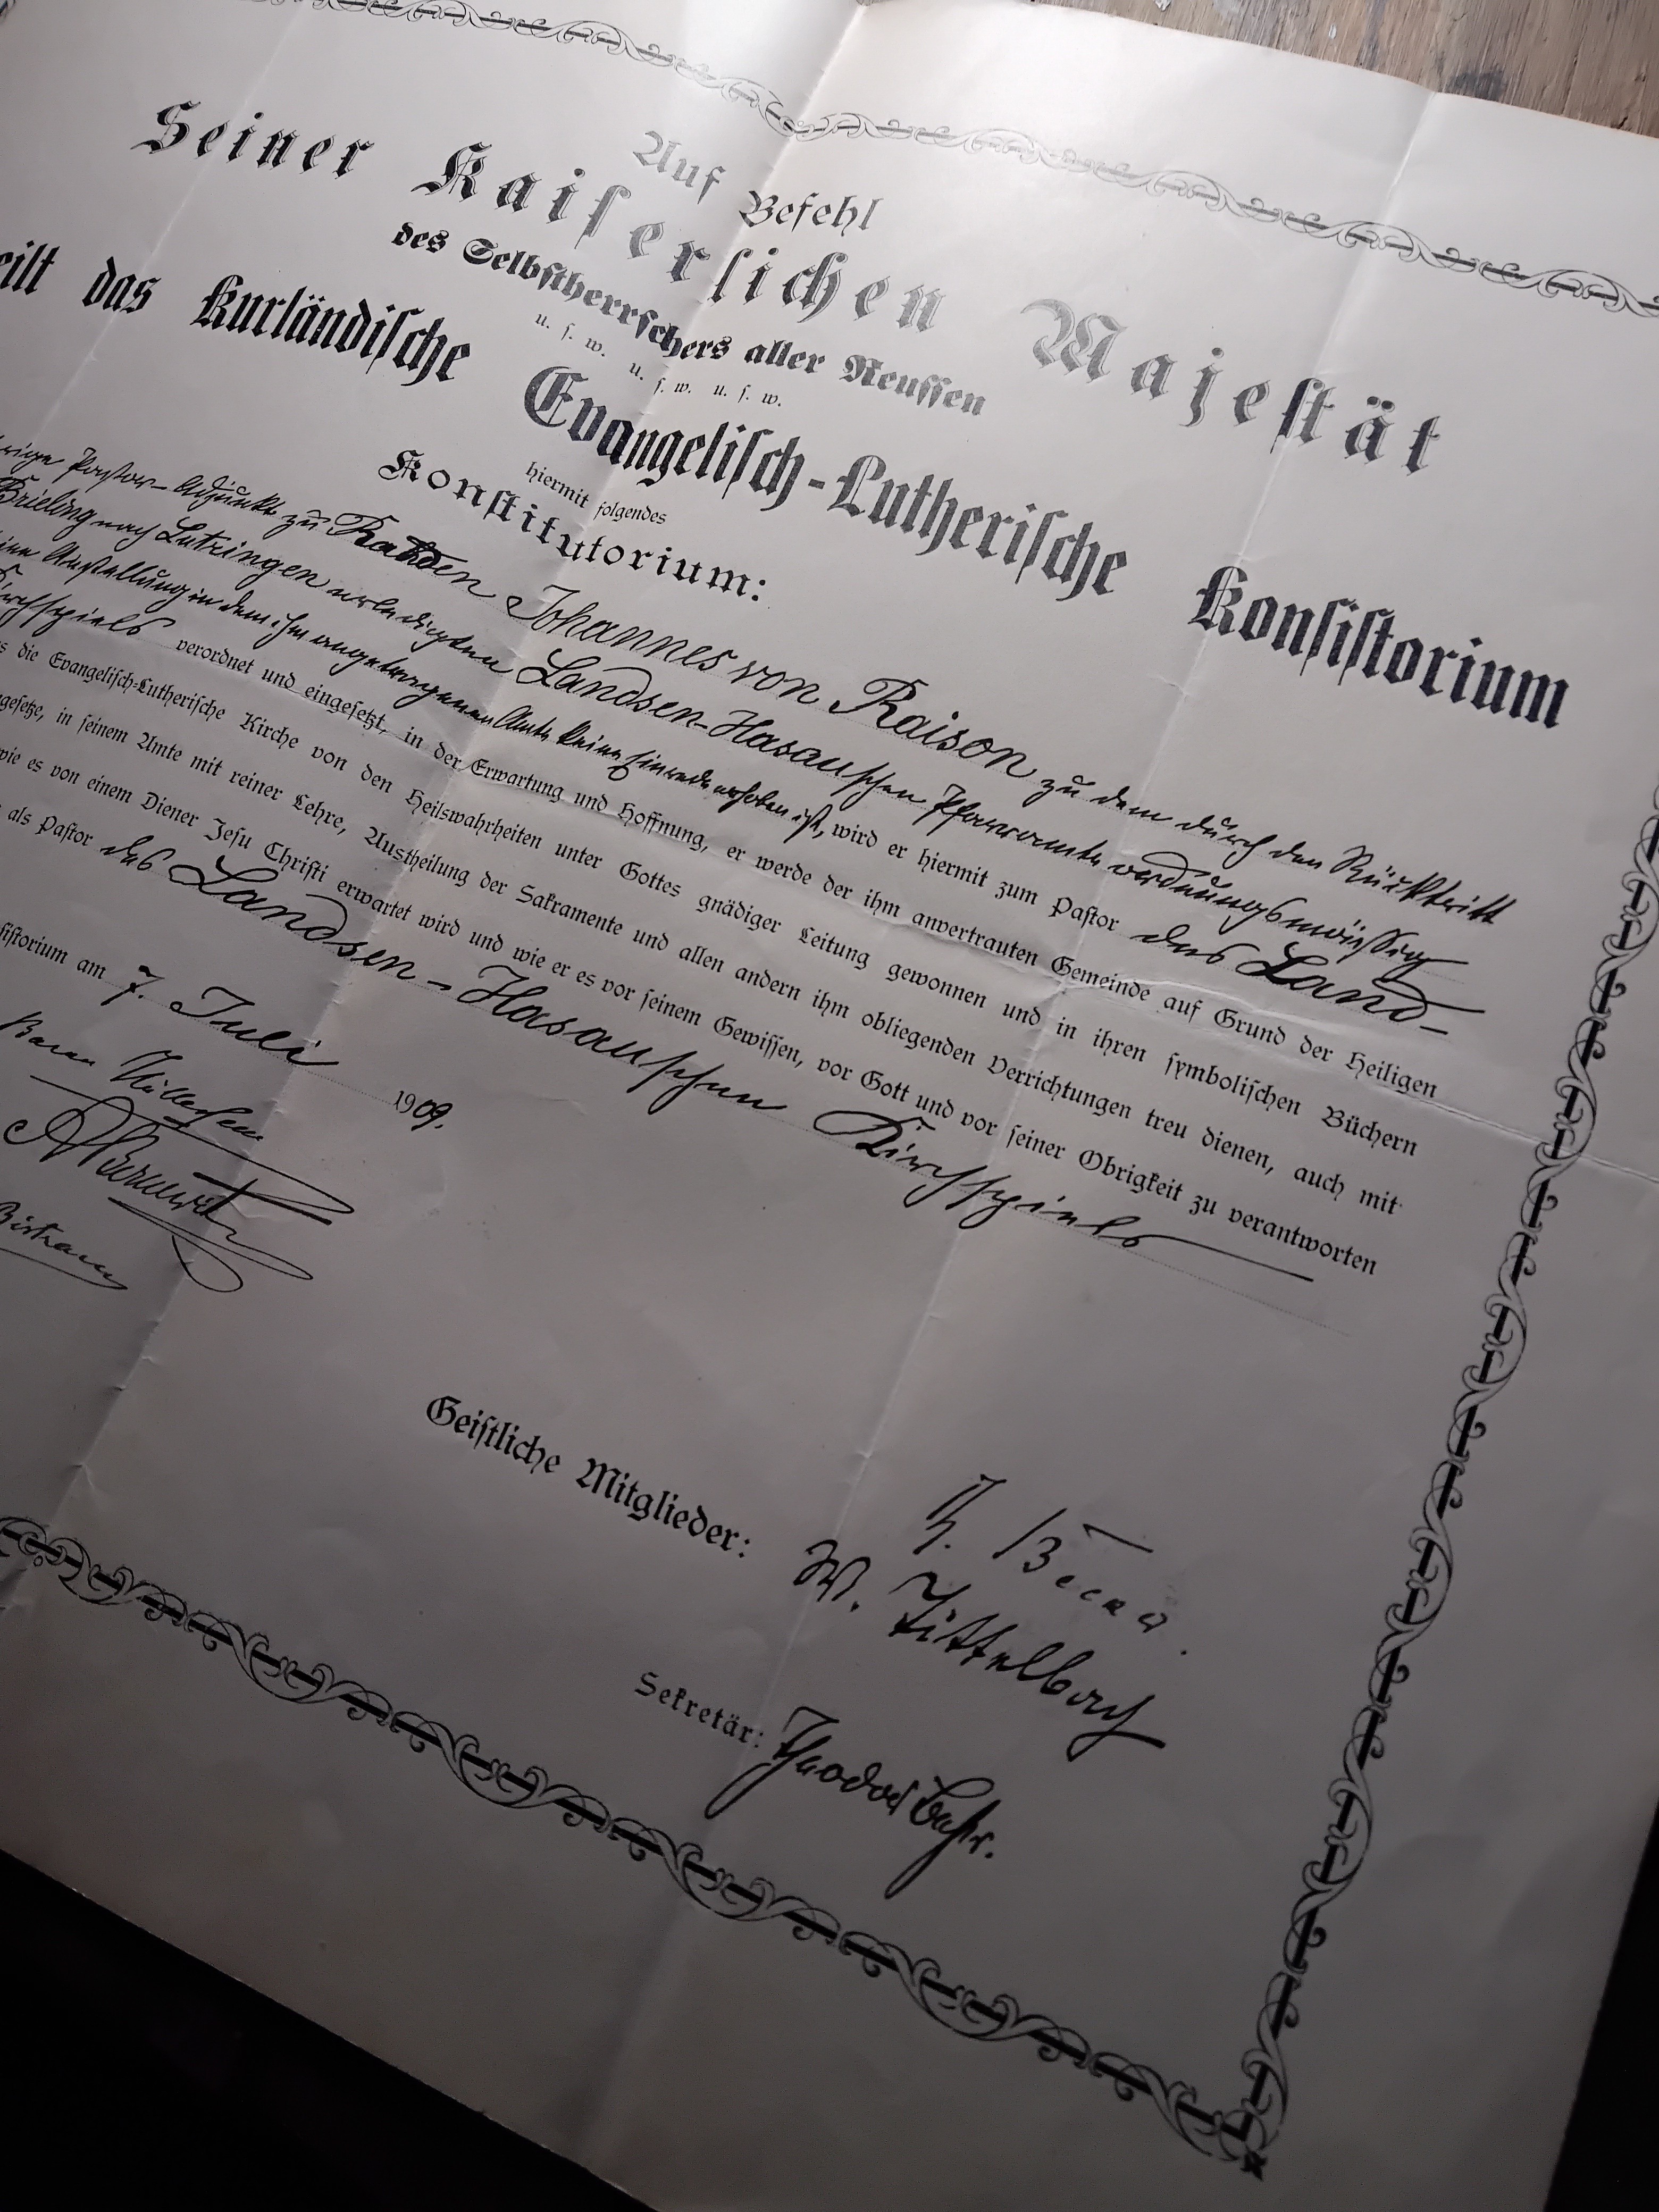 Auf Befehl
Seiner Kaiserlichen Majestät
des Selbstherrschers aller Reussen
u. s. w. u. s. w. u. s. w.
eilt das Kurländische Evangelisch-Lutherische Konsistorium
hiermit folgendes
Konstitutorium:
Pastor-Adjunkt zu Rahden Johannes von Raison zu dem durch den Rücktritt
nach Lutringen erledigten Landsen-Hasauschen Pfarramte ordnungsmässig
Anstellung in dem ihm angetragenen Amte keine Einrede erhoben ist, wird er hiermit zum Pastor des Land-
Kirchspiels verordnet und eingesetzt, in der Erwartung und Hoffnung, er werde der ihm anvertrauten Gemeinde auf Grund der Heiligen
s die Evangelisch-Lutherische Kirche von den Heilswahrheiten unter Gottes gnädiger Leitung gewonnen und in ihren symbolischen Büchern
gesetze, in seinem Amte mit reiner Lehre, Austheilung der Sakramente und allen andern ihm obliegenden Verrichtungen treu dienen, auch mit
wie es von einem Diener Jesu Christi erwartet wird und wie er es vor seinem Gewissen, vor Gott und vor seiner Obrigkeit zu verantworten
als Pastor des Landsen-Hasauschen Kirchspiels
sistorium am 7. Juli 1909.
Baron
Geistliche Mitglieder:
W. Tittelbach
Sekretär: Theodor Behr.